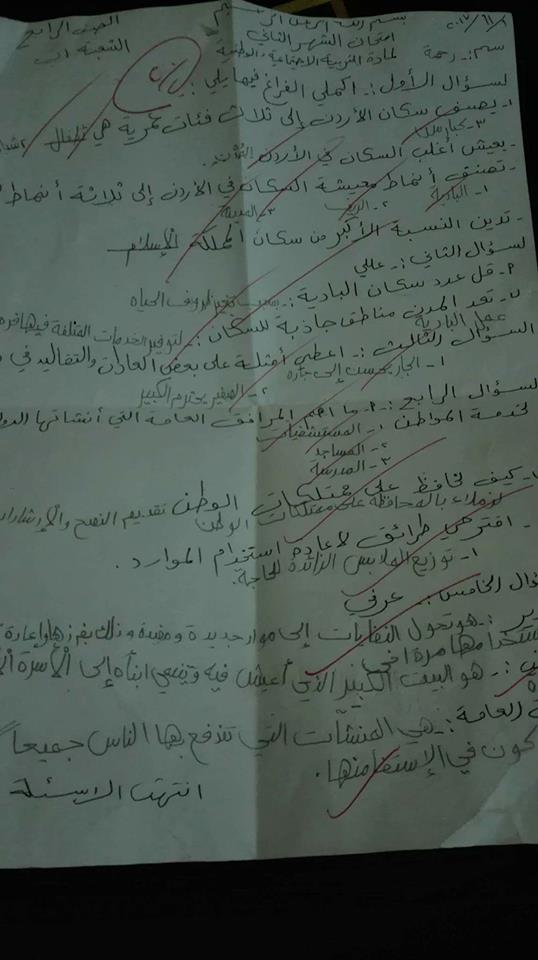 بسم الله الرحمن الرحيم
امتحان الشهر الثاني
الصف الرابع
لمادة التربية الاجتماعية والوطنية
الشعبة أ ب
سم:- رحمة
لسؤال الأول:- اكملي الفراغ فيما يلي:-
١- يصنف سكان الأردن إلى ثلاث فئات عمرية هي أطفال
- يعيش أغلب السكان في الأردن
- تصنف أنماط معيشة السكان في الأردن إلى ثلاثة أنماط
١- البادية ٢- الريف ٣- المدينة
- تدين النسبة الأكبر من سكان المملكة الإسلام
لسؤال الثاني:- عللي
٩- قل عدد سكان البادية:- بسبب تغير ظروف الحياه
تعد المدن مناطق جاذبة للسكان:- لتوفير الخدمات المختلفة فيها
عمل البادية
السؤال الثالث:- اعطي أمثلة على بعض العادات والتقاليد في
١- الجار يحسن إلى جاره
٢- الصغير يحترم الكبير
لسؤال الرابع:- ما أهم المرافق العامة التي أنشأتها الدول
لخدمة المواطن ١- المستشفيات
٢- المساجد
٣- المدرسة
- كيف نحافظ على ممتلكات الوطن تقديم النصح والإرشاد
لزملاء بالمحافظة على ممتلكات الوطن
- اقترحي طرائق لإعادة استخدام الموارد.
١- توزيع الملابس الزائدة للحاجة.
ؤال الخامس:- عرفي
ير:- هو تحول النفايات إلى موار جديدة ومفيدة وذلك بفرزها وإعادة
ستخدامها مرة أخرى
:- هو البيت الكبير الذي أعيش فيه وينتمي ابنأه إلى الأسرة
ق العامة:- هي المنشآت التي تنتفع بها الناس جميعا
كون في الإستفا منها.
انتهت الاسئلة